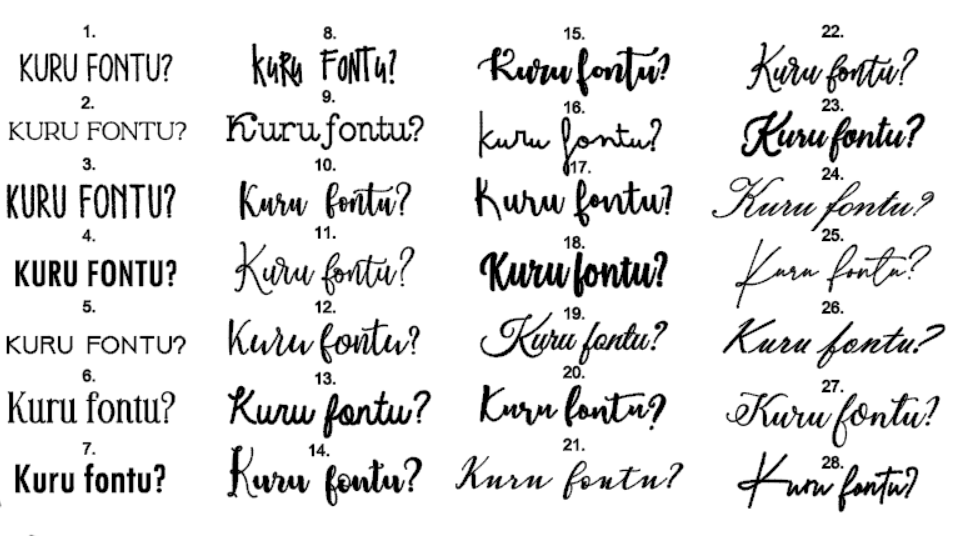 1.
KURU FONTU?
2.
KURU FONTU?
3.
KURU FONTU?
4.
KURU FONTU?
5.
KURU FONTU?
6.
Kuru fontu?
7.
Kuru fontu?
8.
KURU FONTU?
9.
Kuru fontu?
10.
Kuru fontu?
11.
Kuru fontu?
12.
Kuru fontu?
13.
Kuru fontu?
14.
Kuru fontu?
15.
Kuru fontu?
16.
kuru fontu?
17.
Kuru fontu?
18.
Kuru fontu?
19.
Kuru fontu?
20.
Kuru fontu?
21.
Kuru fontu?
22.
Kuru fontu?
23.
Kuru fontu?
24.
Kuru fontu?
25.
Kuru fontu?
26.
Kuru fontu?
27.
Kuru fontu?
28.
Kuru fontu?